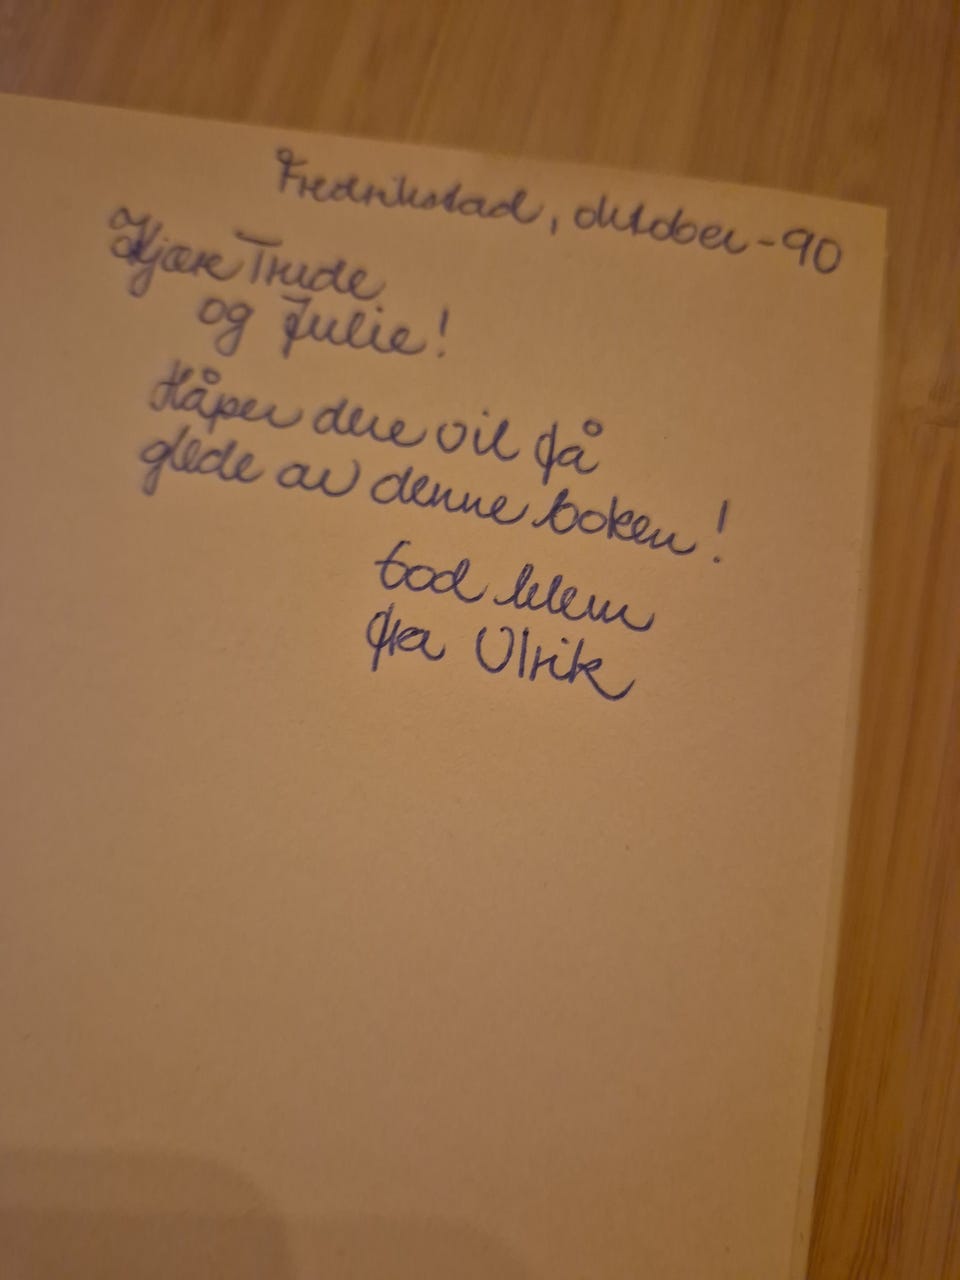 Fredrikstad, oktober - 90
Kjære Trude
og Julie!
Håper dere vil få
glede av denne boken!
God klem
fra Ulrik